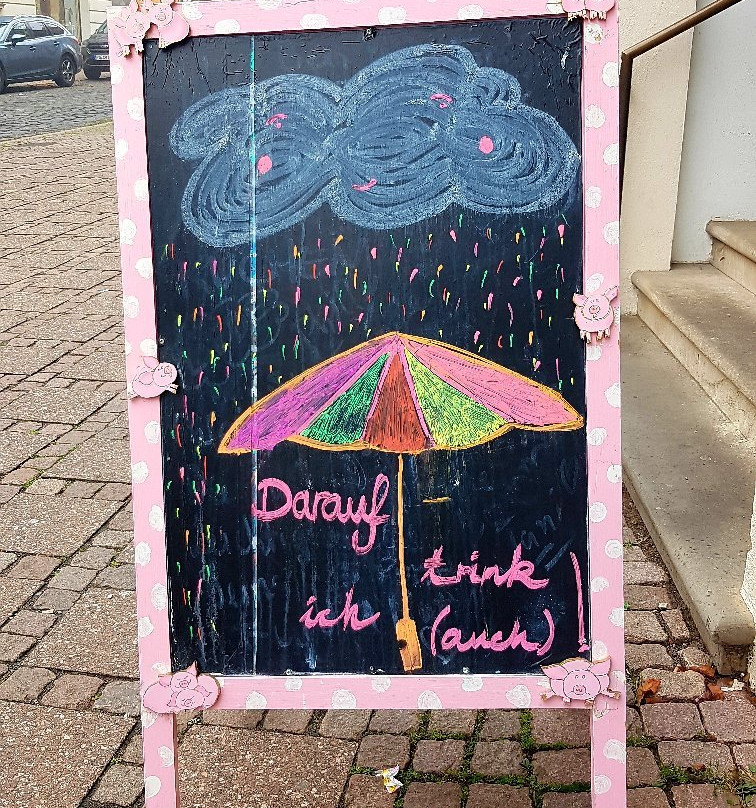 Darauf
trink
ich (auch)!